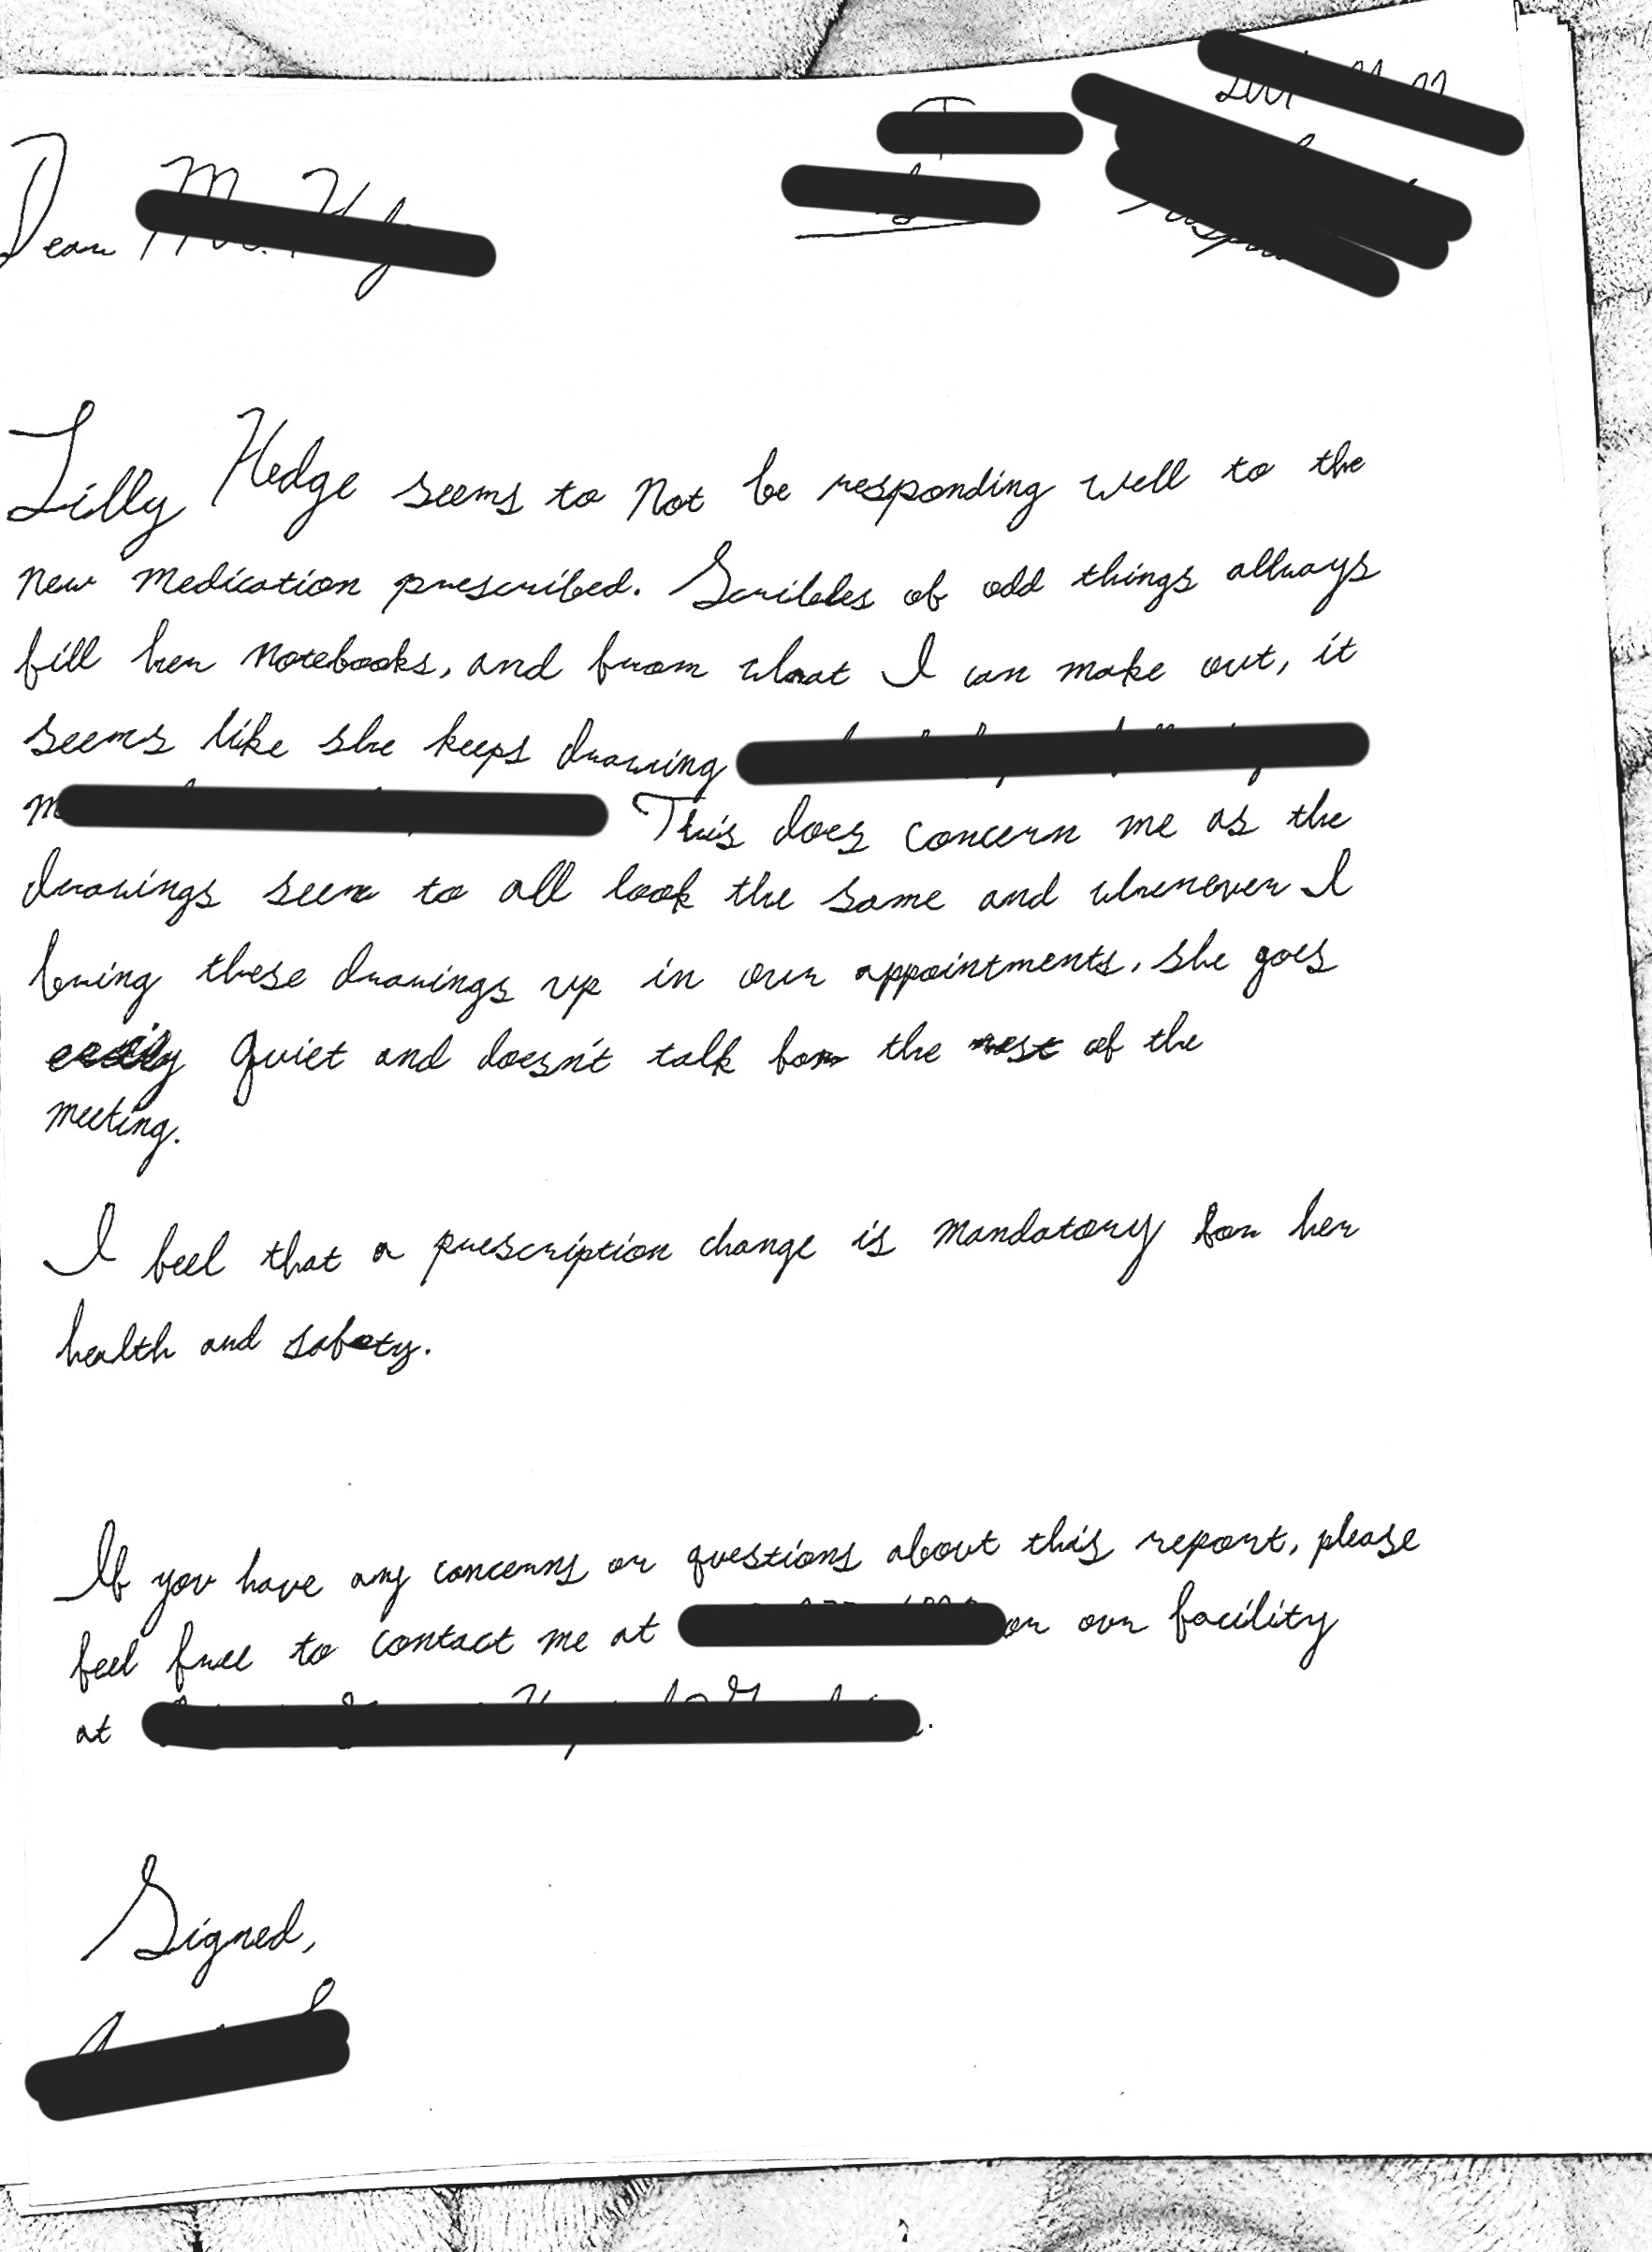 Dear
Lilly Hedge seems to Not be responding well to the
new medication prescribed. Scribbles of odd things allways
fill her notebooks, and from what I can make out, it
seems like she keeps drawing
This does concern me as the
drawings seem to all look the same and whenever I
bring these drawings up in our appointments, she goes
quiet and doesn't talk for the rest of the
meeting.
I feel that a prescription change is mandatory for her
health and safety.
If you have any concerns or questions about this report, please
feel free to contact me at or our facility
at .
Signed,